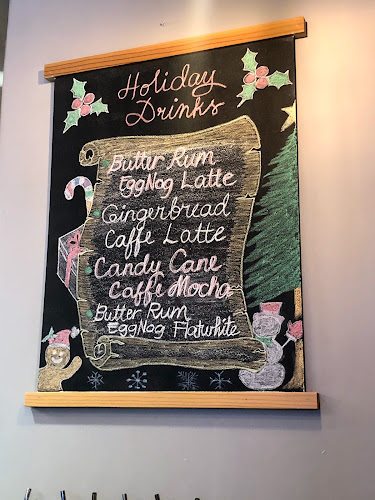 Holiday
Drinks
Butter Rum
EggNog Latte
Gingerbread
Caffe Latte
Candy Cane
Caffe Mocha
Butter Rum
EggNog Flatwhite